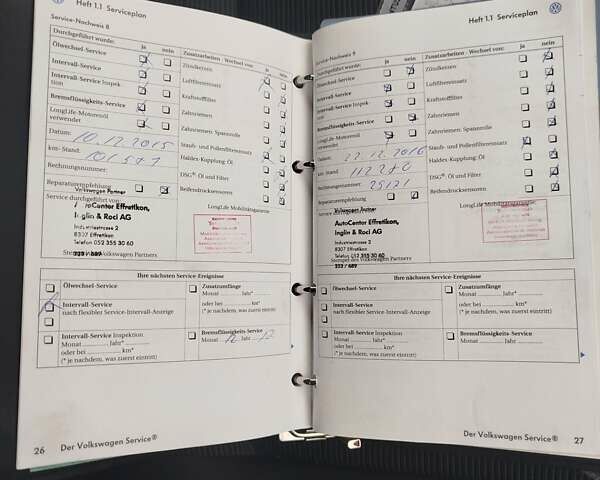 Heft 1.1 Serviceplan
Service-Nachweis 8
Durchgeführt wurde: ja nein
Ölwechsel-Service
Intervall-Service
Intervall-Service Inspek-
tion
Bremsflüssigkeits-Service
LongLife-Motorenöl
verwendet
Datum: 10.12.2015
km-Stand:
Rechnungsnummer:
Reparaturempfehlung
Service durchgeführt von:
Volkswagen Partner
AutoCenter Effretikon,
Inglin & Rod AG
Industriestrasse 2
8307 Effretikon
Telefon 052 355 30 60
223 / 689
Stempel des Volkswagen Partners
Zusatzarbeiten - Wechsel von: ja nein
Zündkerzen
Luftfiltereinsatz
Kraftstofffilter
Zahnriemen
Zahnriemen: Spannrolle
Staub- und Pollenfiltereinsatz
Haldex Kupplung: Öl
DSG®: Öl und Filter
Reifendrucksensoren
LongLife Mobilitätsgarantie
Ihre nächsten Service-Ereignisse
Ölwechsel-Service
Intervall-Service
nach flexibler Service-Intervall-Anzeige
Intervall-Service Inspektion
Monat ........... Jahr*...........
oder bei ........... km*
(* je nachdem, was zuerst eintritt)
Zusatzumfänge
Monat ........... Jahr*...........
oder bei ........... km*
(* je nachdem, was zuerst eintritt)
Bremsflüssigkeits-Service
Monat 12 Jahr 17
26 Der Volkswagen Service®
Heft 1.1 Serviceplan
Service-Nachweis 9
Durchgeführt wurde: ja nein
Ölwechsel-Service
Intervall-Service
Intervall-Service Inspek-
tion
Bremsflüssigkeits-Service
LongLife-Motorenöl
verwendet
Datum: 22.12.2016
km-Stand: 112270
Rechnungsnummer: 25121
Reparaturempfehlung
Service durchgeführt von:
Volkswagen Partner
AutoCenter Effretikon,
Inglin & Rod AG
Industriestrasse 2
8307 Effretikon
Telefon 052 355 30 60
223 / 689
Stempel des Volkswagen Partners
Zusatzarbeiten - Wechsel von: ja nein
Zündkerzen
Luftfiltereinsatz
Kraftstofffilter
Zahnriemen
Zahnriemen: Spannrolle
Staub- und Pollenfiltereinsatz
Haldex Kupplung: Öl
DSG®: Öl und Filter
Reifendrucksensoren
LongLife Mobilitätsgarantie
Ihre nächsten Service-Ereignisse
Ölwechsel-Service
Intervall-Service
nach flexibler Service-Intervall-Anzeige
Intervall-Service Inspektion
Monat ........... Jahr*...........
oder bei ........... km*
(* je nachdem, was zuerst eintritt)
Zusatzumfänge
Monat ........... Jahr*...........
oder bei ........... km*
(* je nachdem, was zuerst eintritt)
Bremsflüssigkeits-Service
Monat ........... Jahr ...........
Der Volkswagen Service® 27